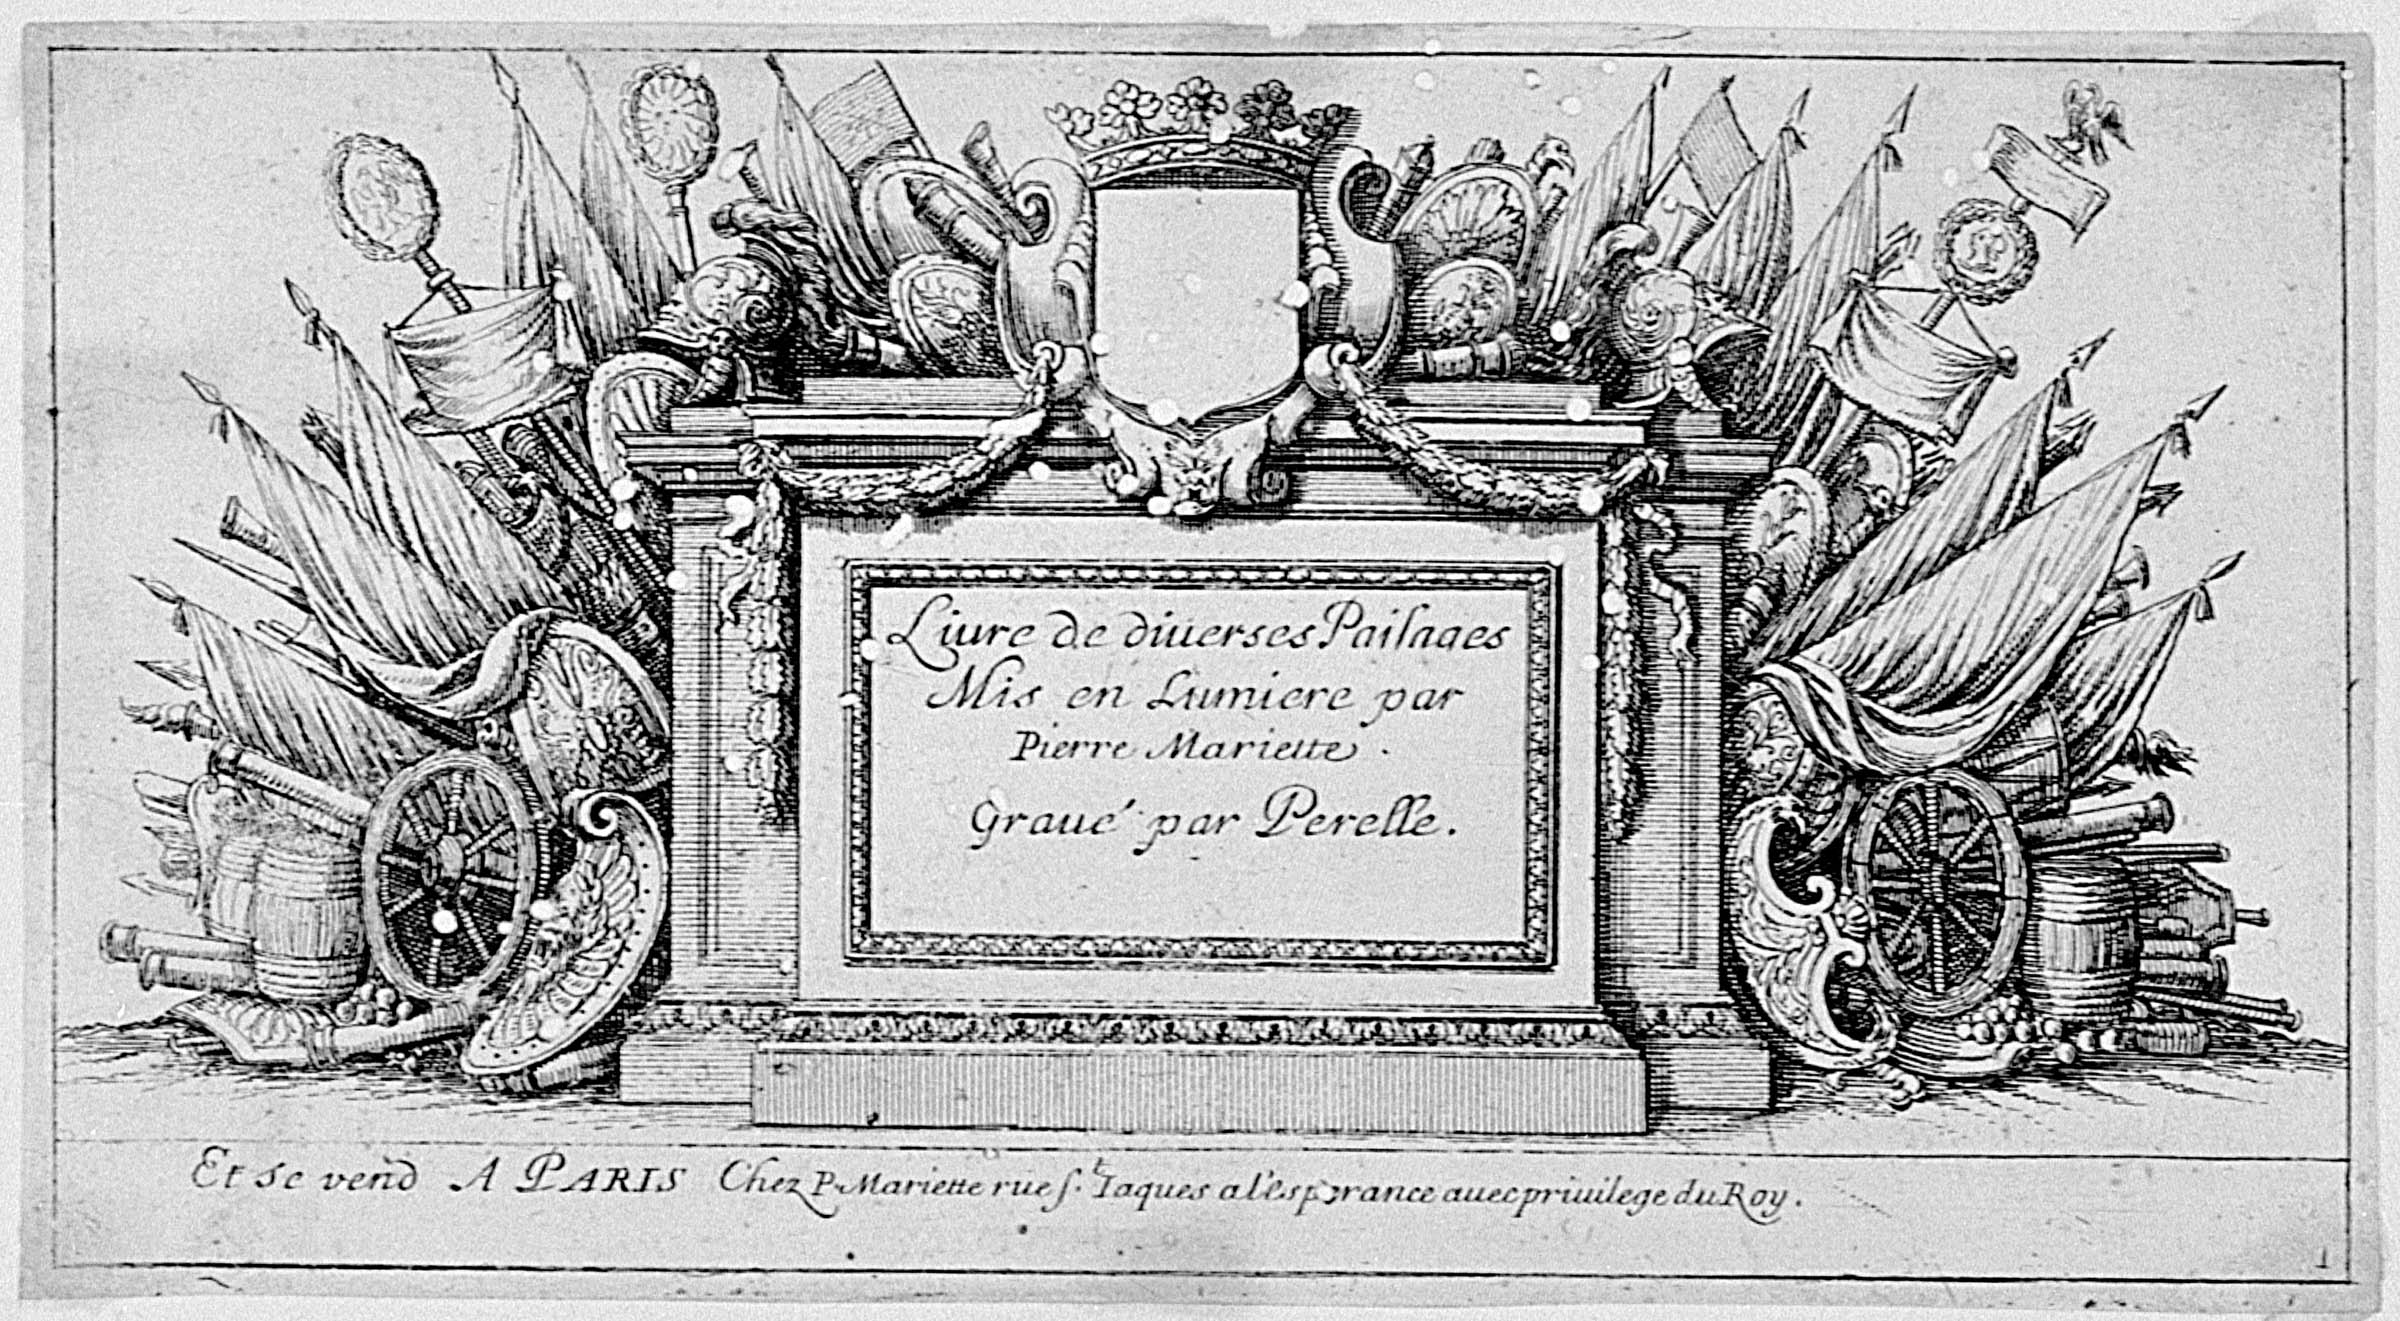 Liure de diuerses Paisages
Mis en Lumiere par
Pierre Mariette.
Graué par Perelle.
Et se vend A PARIS Chez P. Mariette rue St. Iaques a l'esperance auec priuilege du Roy.
1